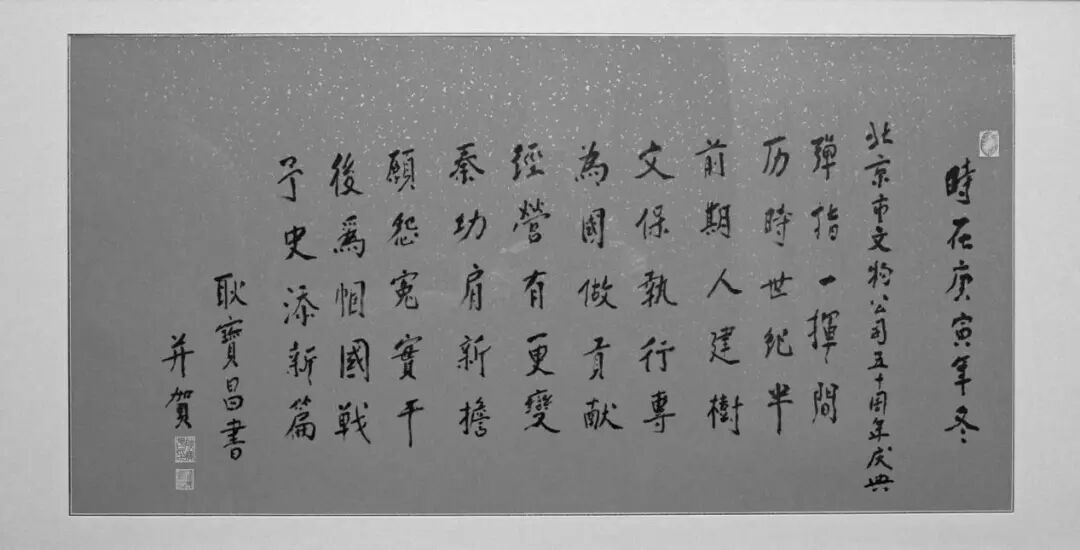 時在庚寅年冬
北京市文物公司五十周年庆典
彈指一揮間
历時世纪半
前期人建樹
文保執行專
為國做貢献
經營有更變
秦功肩新擔
願怨寃實干
後爲帼國戦
予史添新篇
耿寶昌書
并賀